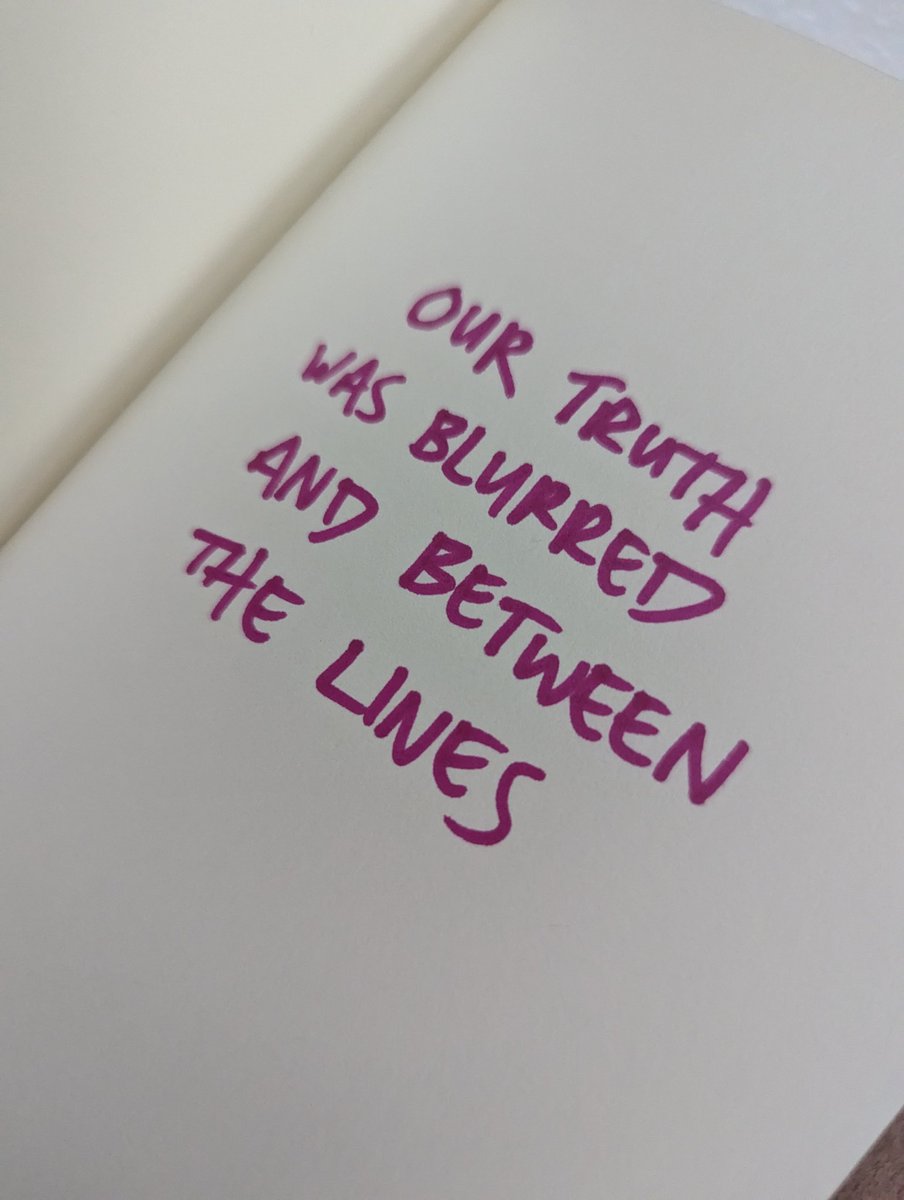 OUR TRUTH
WAS BLURRED
AND BETWEEN
THE LINES